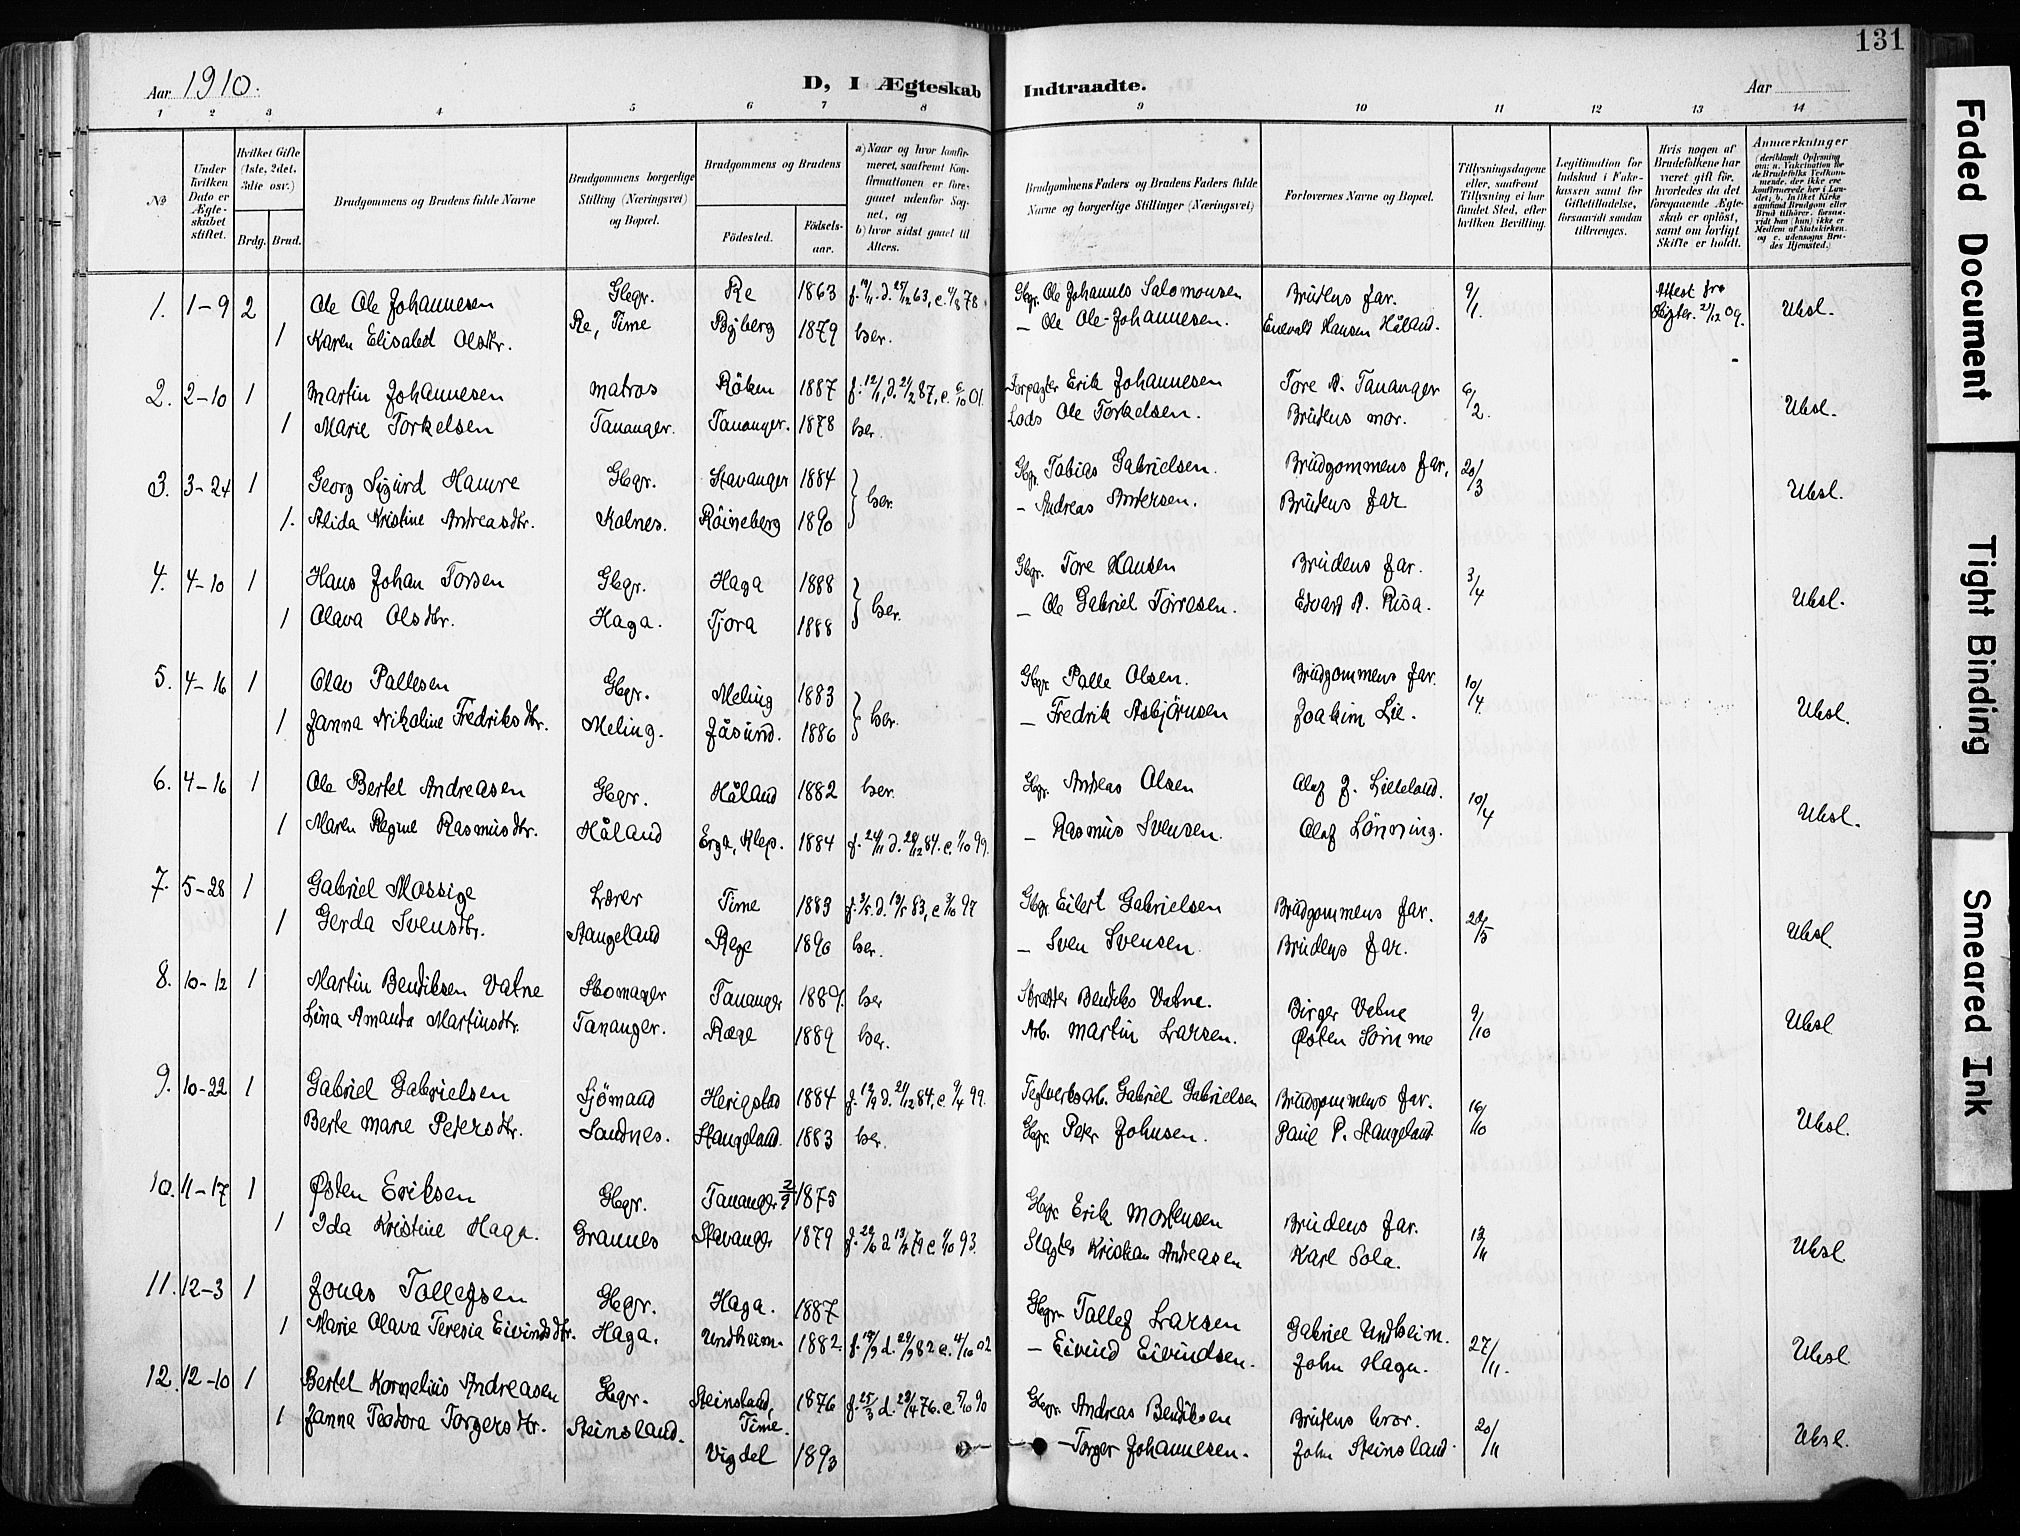 131
Aar 1910.
D, I Ægteskab Indtraadte.
Aar
1 2 3 4 5 6 7 8 9 10 11 12 13 14
№
Under hvilken Dato er Ægteskabet stiftet.
Hvilket Gifte (1ste, 2det, 3die osv.)
Brdg. Brud.
Brudgommens og Brudens fulde Navne
Brudgommens borgerlige Stilling (Næringsvei) og Bopæl.
Brudgommens og Brudens
Födested. Födselsaar.
a) Naar og hvor konfirmeret, saafremt Konfirmationen er foregaaet udenfor Sognet, og
b) hvor sidst gaaet til Alters.
Brudgommens Faders og Brudens Faders fulde Navne og borgerlige Stillinger (Næringsvei)
Forlovernes Navne og Bopæl.
Tillysningsdagene eller, saafremt Tillysning ei har fundet Sted, efter hvilken Bevilling.
Legitimation for Indskud i Enkekassen samt for Giftetilladelse, forsaavidt saadan tiltrænges.
Hvis nogen af Brudefolkene har været gift før, hvorledes da det foregaaende Ægteskab er opløst, samt om lovligt Skifte er holdt.
Anmærkninger
1. 1-9 2 Ole Ole Johannesen Gbgr. Re 1863 Gbgr. Ole Johannes Salomonsen Brudens far. 9/1. Attest fra Ubsl.
1 Karen Elisabed Olsdtr. Re, Time Byberg 1879 her. - Ole Ole Johannesen. Enevald Hansen Håland.
2. 2-10 1 Martin Johannesen matros Röken 1887 Forpagter Erik Johannesen Tore A. Tananger 6/2. Ubsl.
1 Marie Torkelsen Tananger. Tananger. 1878 her. Lods Ole Torkelsen. Brudens mor.
3. 3-24 1 Georg Sigurd Hamre Gbgr. Stavanger 1884 her. Gbgr. Tobias Gabrielsen. Brudgommens far. 20/3 Ubsl.
1. Alida Kristine Andreasdtr. Kolnes. Röineberg 1890 - Andreas Andersen. Brudens far
4. 4-10 1 Hans Johan Torsen Gbgr. Haga 1888 her. Gbgr. Tore Hansen Brudens far. 3/4 Ubsl.
1 Olava Olsdtr. Haga. Tjora 1888 - Ole Gabriel Torresen. Edvard A. Risa.
5. 4-16 1 Olav Pallesen Gbgr. Meling 1883 her. Gbgr. Palle Olsen. Brudgommens far. 10/4. Ubsl.
1 Janna Nikoline Fredriksdtr. Meling. Jåsund. 1886 - Fredrik Asbjörnsen Joakim Lie.
6. 4-16 1 Ole Bertel Andreasen Gbgr. Håland 1882 her. Gbgr. Andreas Olsen Olaf J. Lilleland. 10/4 Ubsl.
1 Maren Regine Rasmusdtr. Håland Erga, Klep. 1884 - Rasmus Svensen. Olaf Lönning.
7. 5-28 1 Gabriel Mossige Lærer Time 1883 Gbgr. Eilert Gabrielsen Brudgommens far. Ubsl
1 Gerda Svensdtr. Stangeland Rege 1890 her. - Sven Svensen. Brudens far.
8. 10-12 1 Martin Bendiksen Vatne Skomager Tananger 1889. her Skredder Bendiks Vatne. Birger Vatne 9/10 Ubsl
Lina Amanda Martinsdtr. Tananger. Ræge 1889 her. Arb. Martin Larsen. Østen Sømme
9. 10-22 1 Gabriel Gabrielsen Sjömand Herigstad 1884 Teglverksarb. Gabriel Gabrielsen Brudgommens far. 16/10 Ubsl.
Berte Marie Petersdtr. Sandnes. Stangeland. 1883 her. Gbgr. Peter Johnsen. Paul P. Stangeland
10. 11-17 1 Østen Eriksen Gbgr. Tananger 1875 Gbgr. Erik Mortensen Brudens far. 13/11 Ubsl
1 Ida Kristine Haga. Grannes Stavanger 1879 Slagter Kristian Andreasen Karl Sola.
11. 12-3 1 Jonas Tollefsen Gbgr. Haga. 1887 Gbgr. Tollef Larsen Gabriel Undheim. 27/11. Ubsl
1 Marie Olava Teresia Eivindsdtr. Haga. Undheim. 1882 - Eivind Eivindsen. John Haga.
12. 12-10 1 Bertel Kornelius Andreasen Gbgr. Steinsland, Time. 1876 Gbgr. Andreas Bendiksen Brudens bror. 20/11 Ubsl.
1 Janna Teodora Torgersdtr. Steinsland. Vigdel 1893 - Torger Johannesen. John Steinsland
Faded Document
Tight Binding
Smeared Ink